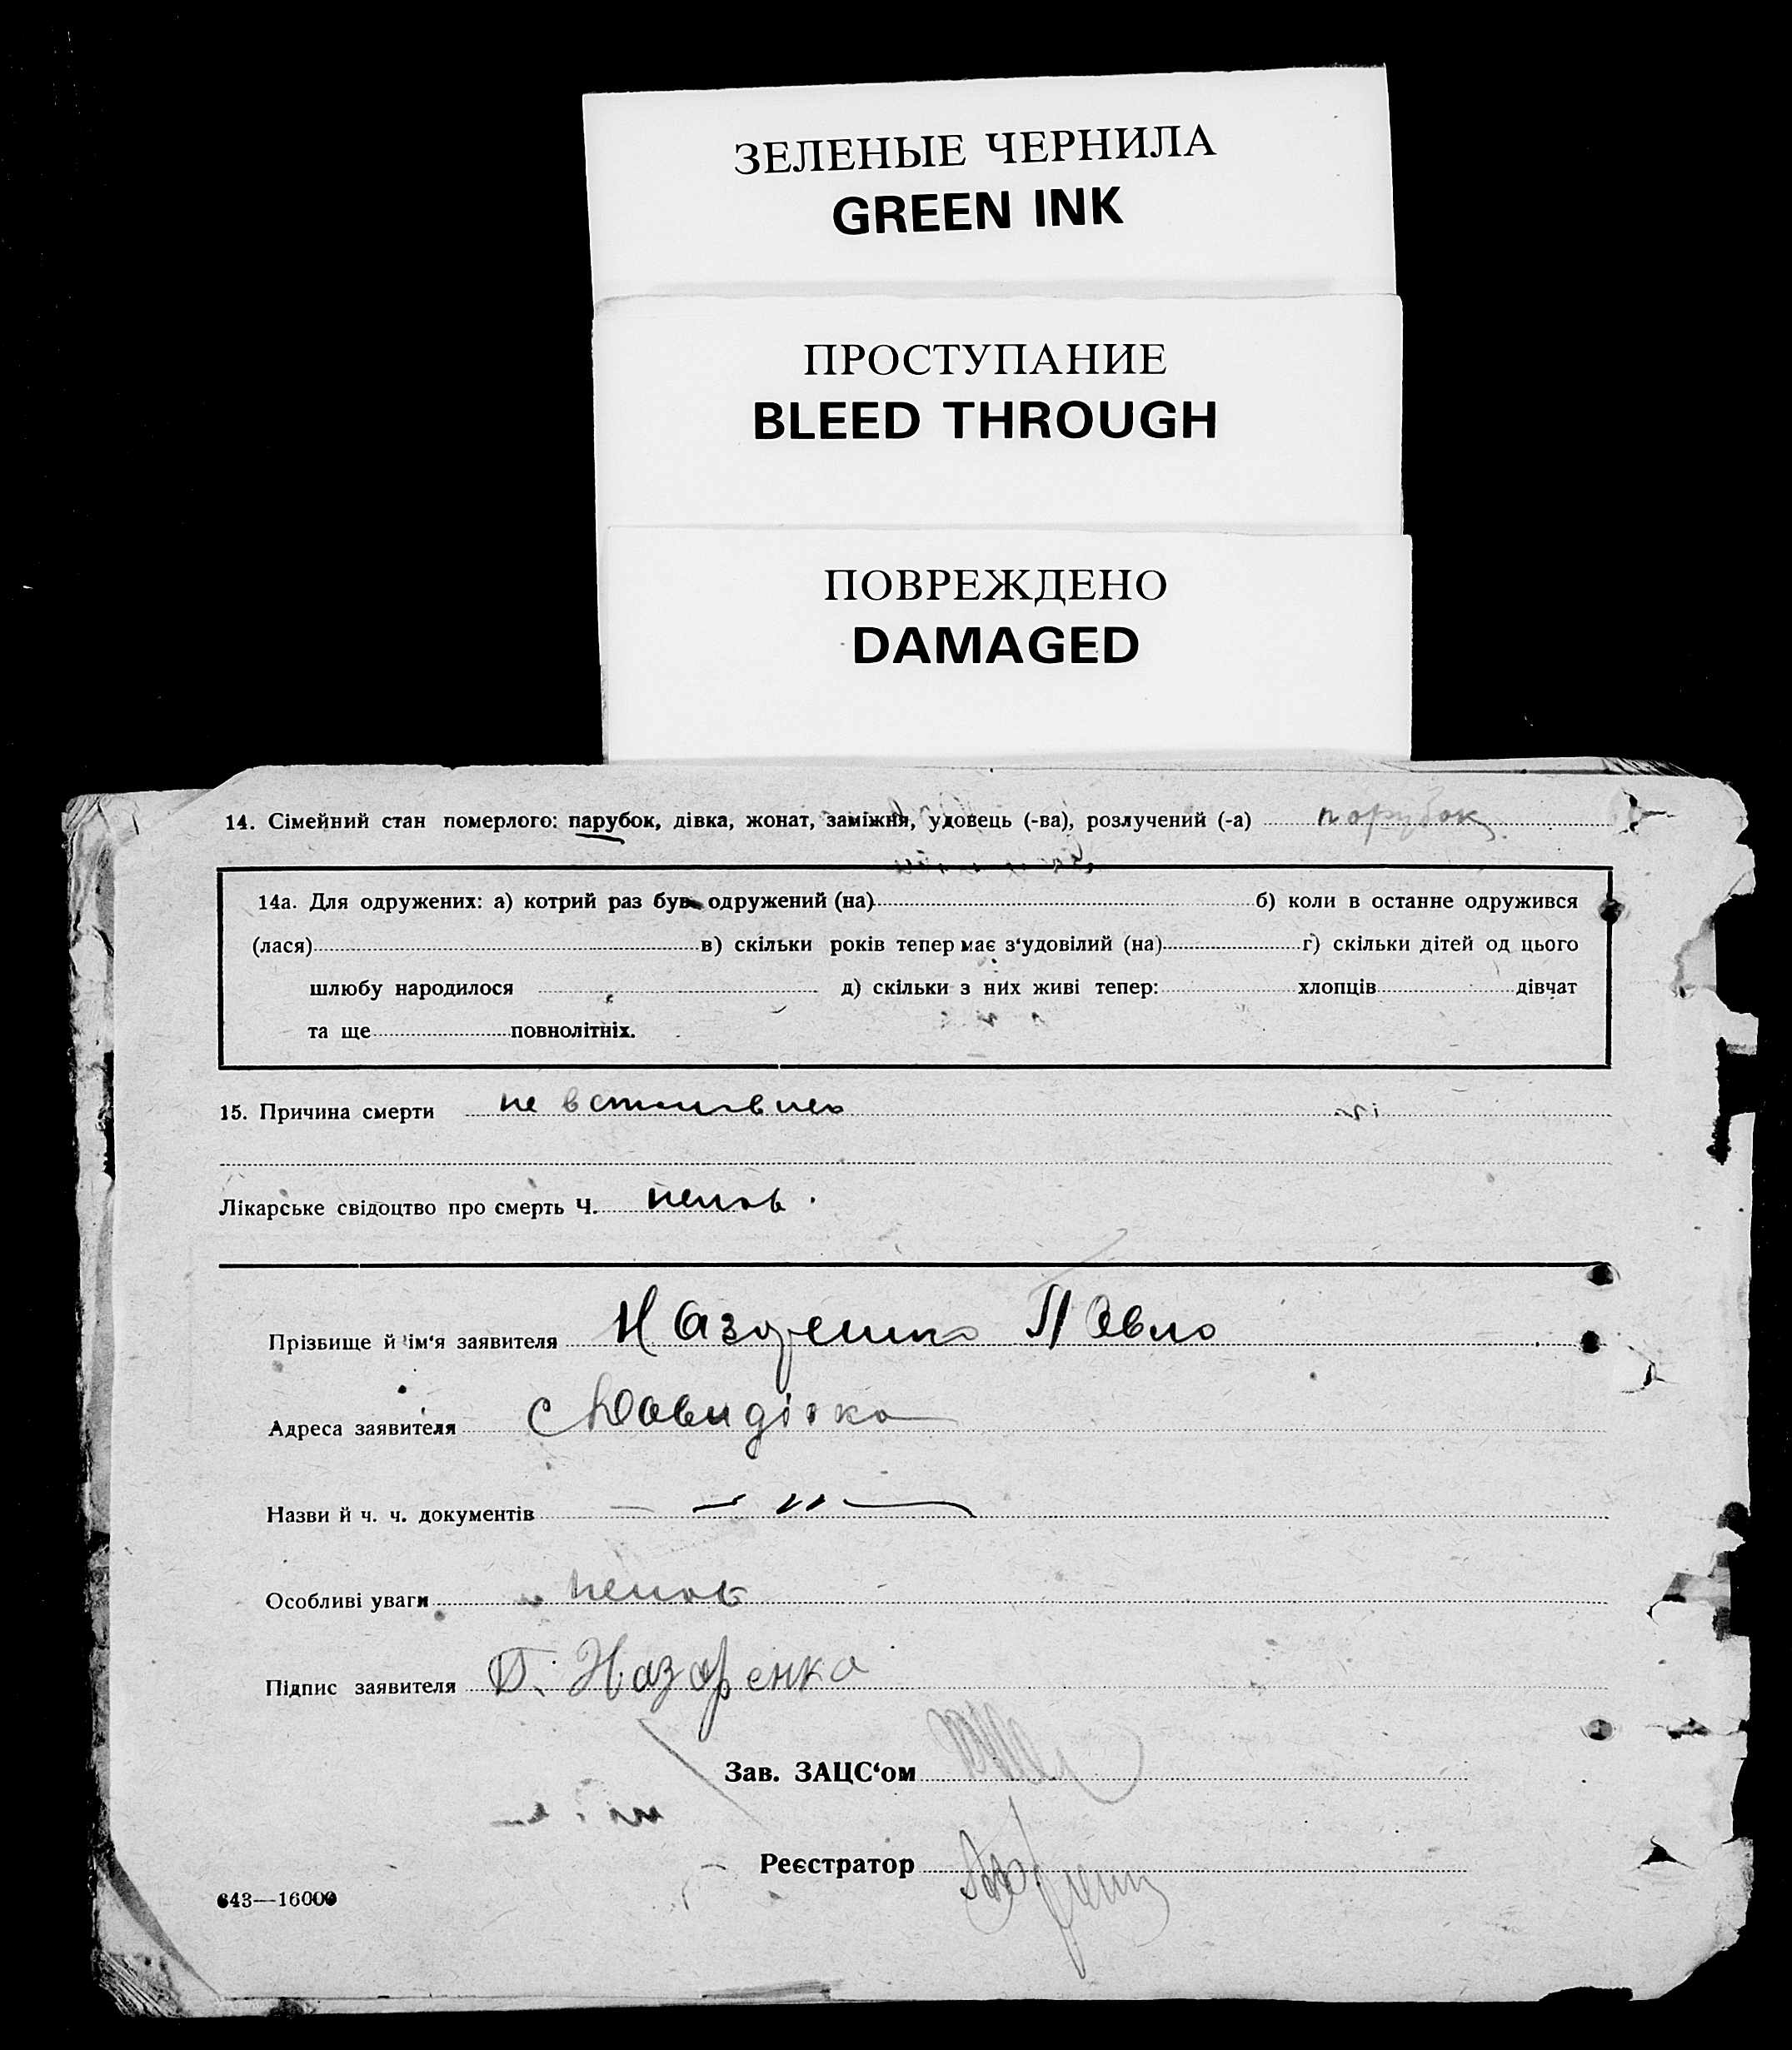 ЗЕЛЕНЫЕ ЧЕРНИЛА
GREEN INK
ПРОСТУПАНИЕ
BLEED THROUGH
ПОВРЕЖДЕНО
DAMAGED
14. Сімейний стан померлого: парубок, дівка, жонат, заміжня, удовець (-ва), розлучений (-а) порубок
14а. Для одружених: а) котрий раз був одружений (на) б) коли в останне одружився
(лася) в) скільки років тепер має з‘удовілий (на) г) скільки дітей од цього
шлюбу народилося д) скільки з них живі тепер: хлопців дівчат
та ще повнолітніх.
15. Причина смерти не
Лікарське свідоцтво про смерть Ч.
Прізвище й ім‘я заявителя Павло
Адреса заявителя с Давидівка
Назви й ч. ч. документів — " —
Особливі уваги
Підпис заявителя П. Назаренко
Зав. ЗАЦС‘ом
Реєстратор
643—16000